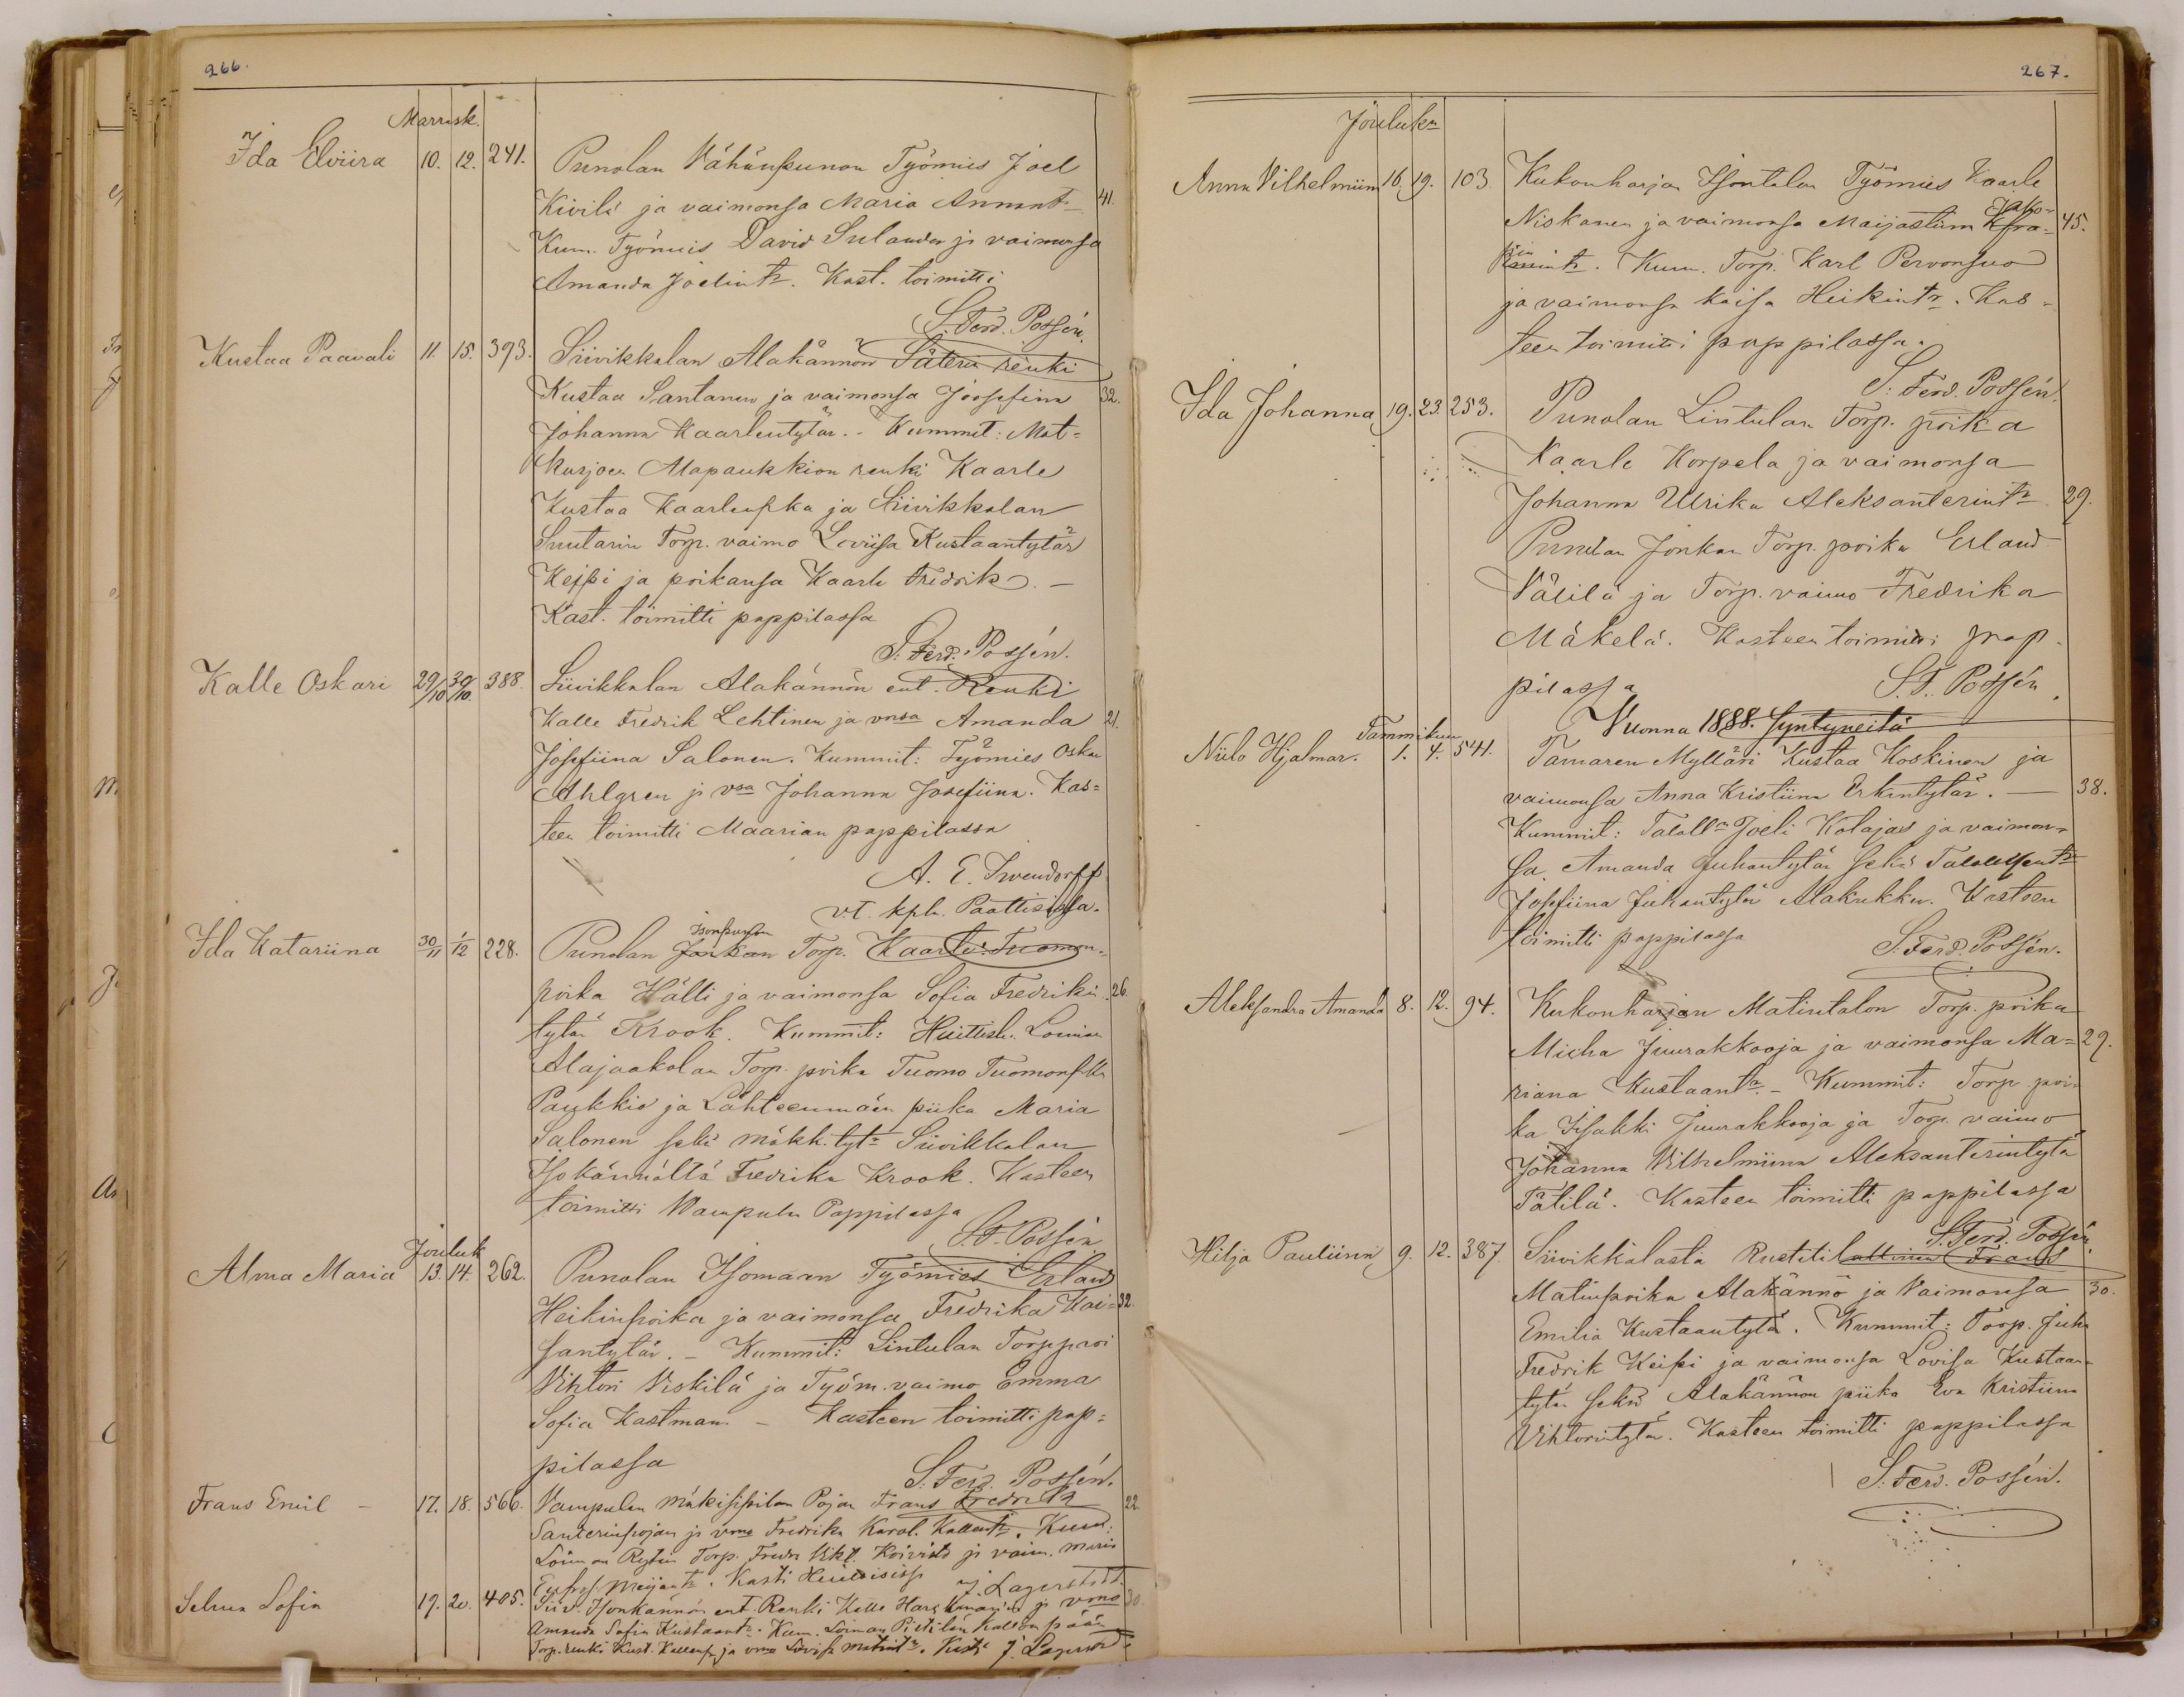 266.
Marrask.
Ida Elviira 10. 12. 241. Punolan Vähänpunon Työmies Joel
Kivilä ja vaimonsa Maria Annant. 41.
Kum. Työmies David Sulander ja vaimonsa
Amanda Joelintr. Kast. toimitti
S. Ferd. Possén.
Kustaa Paavali 11. 15. 393. Siivikkalan Alakännön Säterin renki
Kustaa Santanen ja vaimonsa Joosefiina 32.
Johanna Kaarlentytär. - Kummit: Mat=
kusjoen Alapaukkion renki Kaarle
Kustaa Kaarlenpka ja Siivikkalan
Suutarin Torp. vaimo Loviisa Kustaantytär
Keippi ja poikansa Kaarle Fredrik. -
Kast. toimitti pappilassa
S. Ferd. Possén.
Kalle Oskari 29/10 30/10. 388. Siivikkalan Alakännön ent. Renki
Kalle Fredrik Lehtinen ja vnsa Amanda 21.
Josefiina Salonen. Kummit: Työmies Oskar
Ahlgren ja vsa Johanna Josefiina. Kas=
teen toimitti Maarian pappilassa
A. E.
v.t. kpl. Paattisissa.
Ida Katariina 30/11 1/12 228. Punolan Jonkan Isonpunon Torp. Kaarle Tuomon=
poika Hälli ja vaimonsa Sofia Fredrikin 26.
tytär Krook. Kummit: Huittisk. Loiman
Alajaakolan Torp. poika Tuomo Tuomonpka
Paukkio ja Lähteenmäen piika Maria
Salonen sekä mäkk. tytr Siivikkalan
Isokännältä Fredrika Krook. Kasteen
toimitti Vampulan Pappilassa
S. F. Possén
Jouluk
Alma Maria 13. 14. 262. Punolan Isomaan Työmies Erland
Heikinpoika ja vaimonsa Fredrika Kai= 32.
santytär. - Kummit: Lintulan Torp. poi
Vihtori Viskilä ja Työm. vaimo Emma
Sofia Kastman. - Kasteen toimitti pap=
pilassa
S. Ferd. Possén.
Frans Emil - 17. 18. 566. Vampulan mäkisspilan Pojan Frans Fredrik 22
Santerinpojan ja vmo Fredrika Karol. Kallentr. Kum:
Loiman Rytin Torp. Fredr. Vikt. Koivisto ja vaim. Maria
Eufros. Meijantr. Kasti Huittisissa J. Lagerstedt.
Selma Sofia 19. 20. 405. Siiv. Isonkännön ent. Renki Kalle ja vmo 30.
Amanda Sofia Kustaantr. Kum. Loiman Pietilän Kallon pään
Torp. renki Kust. Kallenp. ja vmo Lovisa Matintr. Kasti J. Lagerstedt
267.
Jouluku
Anna Vilhelmiin 16. 19. 103. Kukonharjan Isontalon Työmies Kaarle
Niskanen ja vaimonsa Maijastiina Jako= 45.
pintr. Kum. Torp. Karl Pervonsuo
ja vaimonsa Kaisa Heikintr. Kas=
teen toimitti pappilassa.
S. Ferd. Possén.
Ida Johanna 19. 23. 253. Punolan Lintulan Torp. poika
Kaarle Korpela ja vaimonsa
Johanna Ulrika Aleksanterintr 29.
Punolan Jonkan Torp. poika Erland
Välilä ja Torp. vaimo Fredrika
Mäkelä. Kasteen toimitti pap-
pilassa S. F. Possén.
Vuonna 1888. Syntyneitä
Tammikuu
Niilo Hjalmar. 1. 4. 541. Tamaren Mylläri Kustaa Koskinen ja
vaimonsa Anna Kristiina Erkintytär. - 38.
Kummit: Talolln Joeli Kolajas ja vaimon=
sa Amanda Juhantytär sekä Talollisentr
Josefiina Juhantytär Alakukku. Kasteen
toimitti pappilassa S. Ferd. Possén.
Aleksandra Amanda 8. 12. 94. Kukonharjan Matintalon Torp. poika
Micha Juurakkooja ja vaimonsa Ma= 29.
riana Kustaantr. - Kummit: Torp. poi=
ka Iisakki Juurakkooja ja Torp. vaimo
Johanna Vilhelmiina Aleksanterintytär
Tätilä. Kasteen toimitti pappilassa
S. Ferd. Possén.
Hilja Pauliina 9. 12. 387. Siivikkalasta Rustitilallinen Frans
Matinpoika Alakännö ja Vaimonsa 30.
Emilia Kustaantytär. Kummit: Torp. Juha
Fredrik Keipi ja vaimonsa Lovisa Kustaan-
tytär sekä Alakännön piika Eva Kristiina
Vihtorintytär. Kasteen toimitti pappilassa
S. Ferd. Possén.